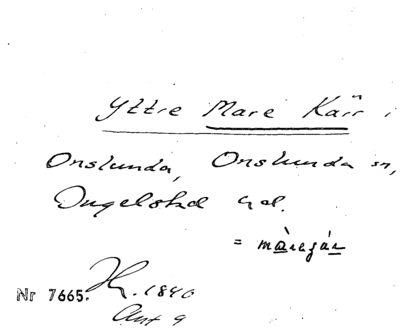 Yttre Mare Kärr i
Onslunda, Onslunda sn,
Ingelstad hd.
= màragár
Nr 7665. 1840
Akt 9